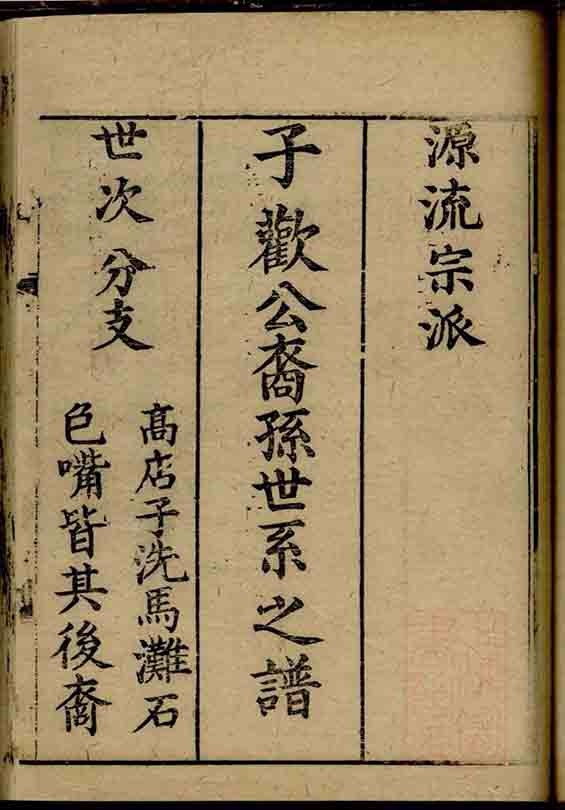 源流宗派
子歡公裔孫世系之譜
世次分支
高店子洗馬灘石
色嘴皆其後裔